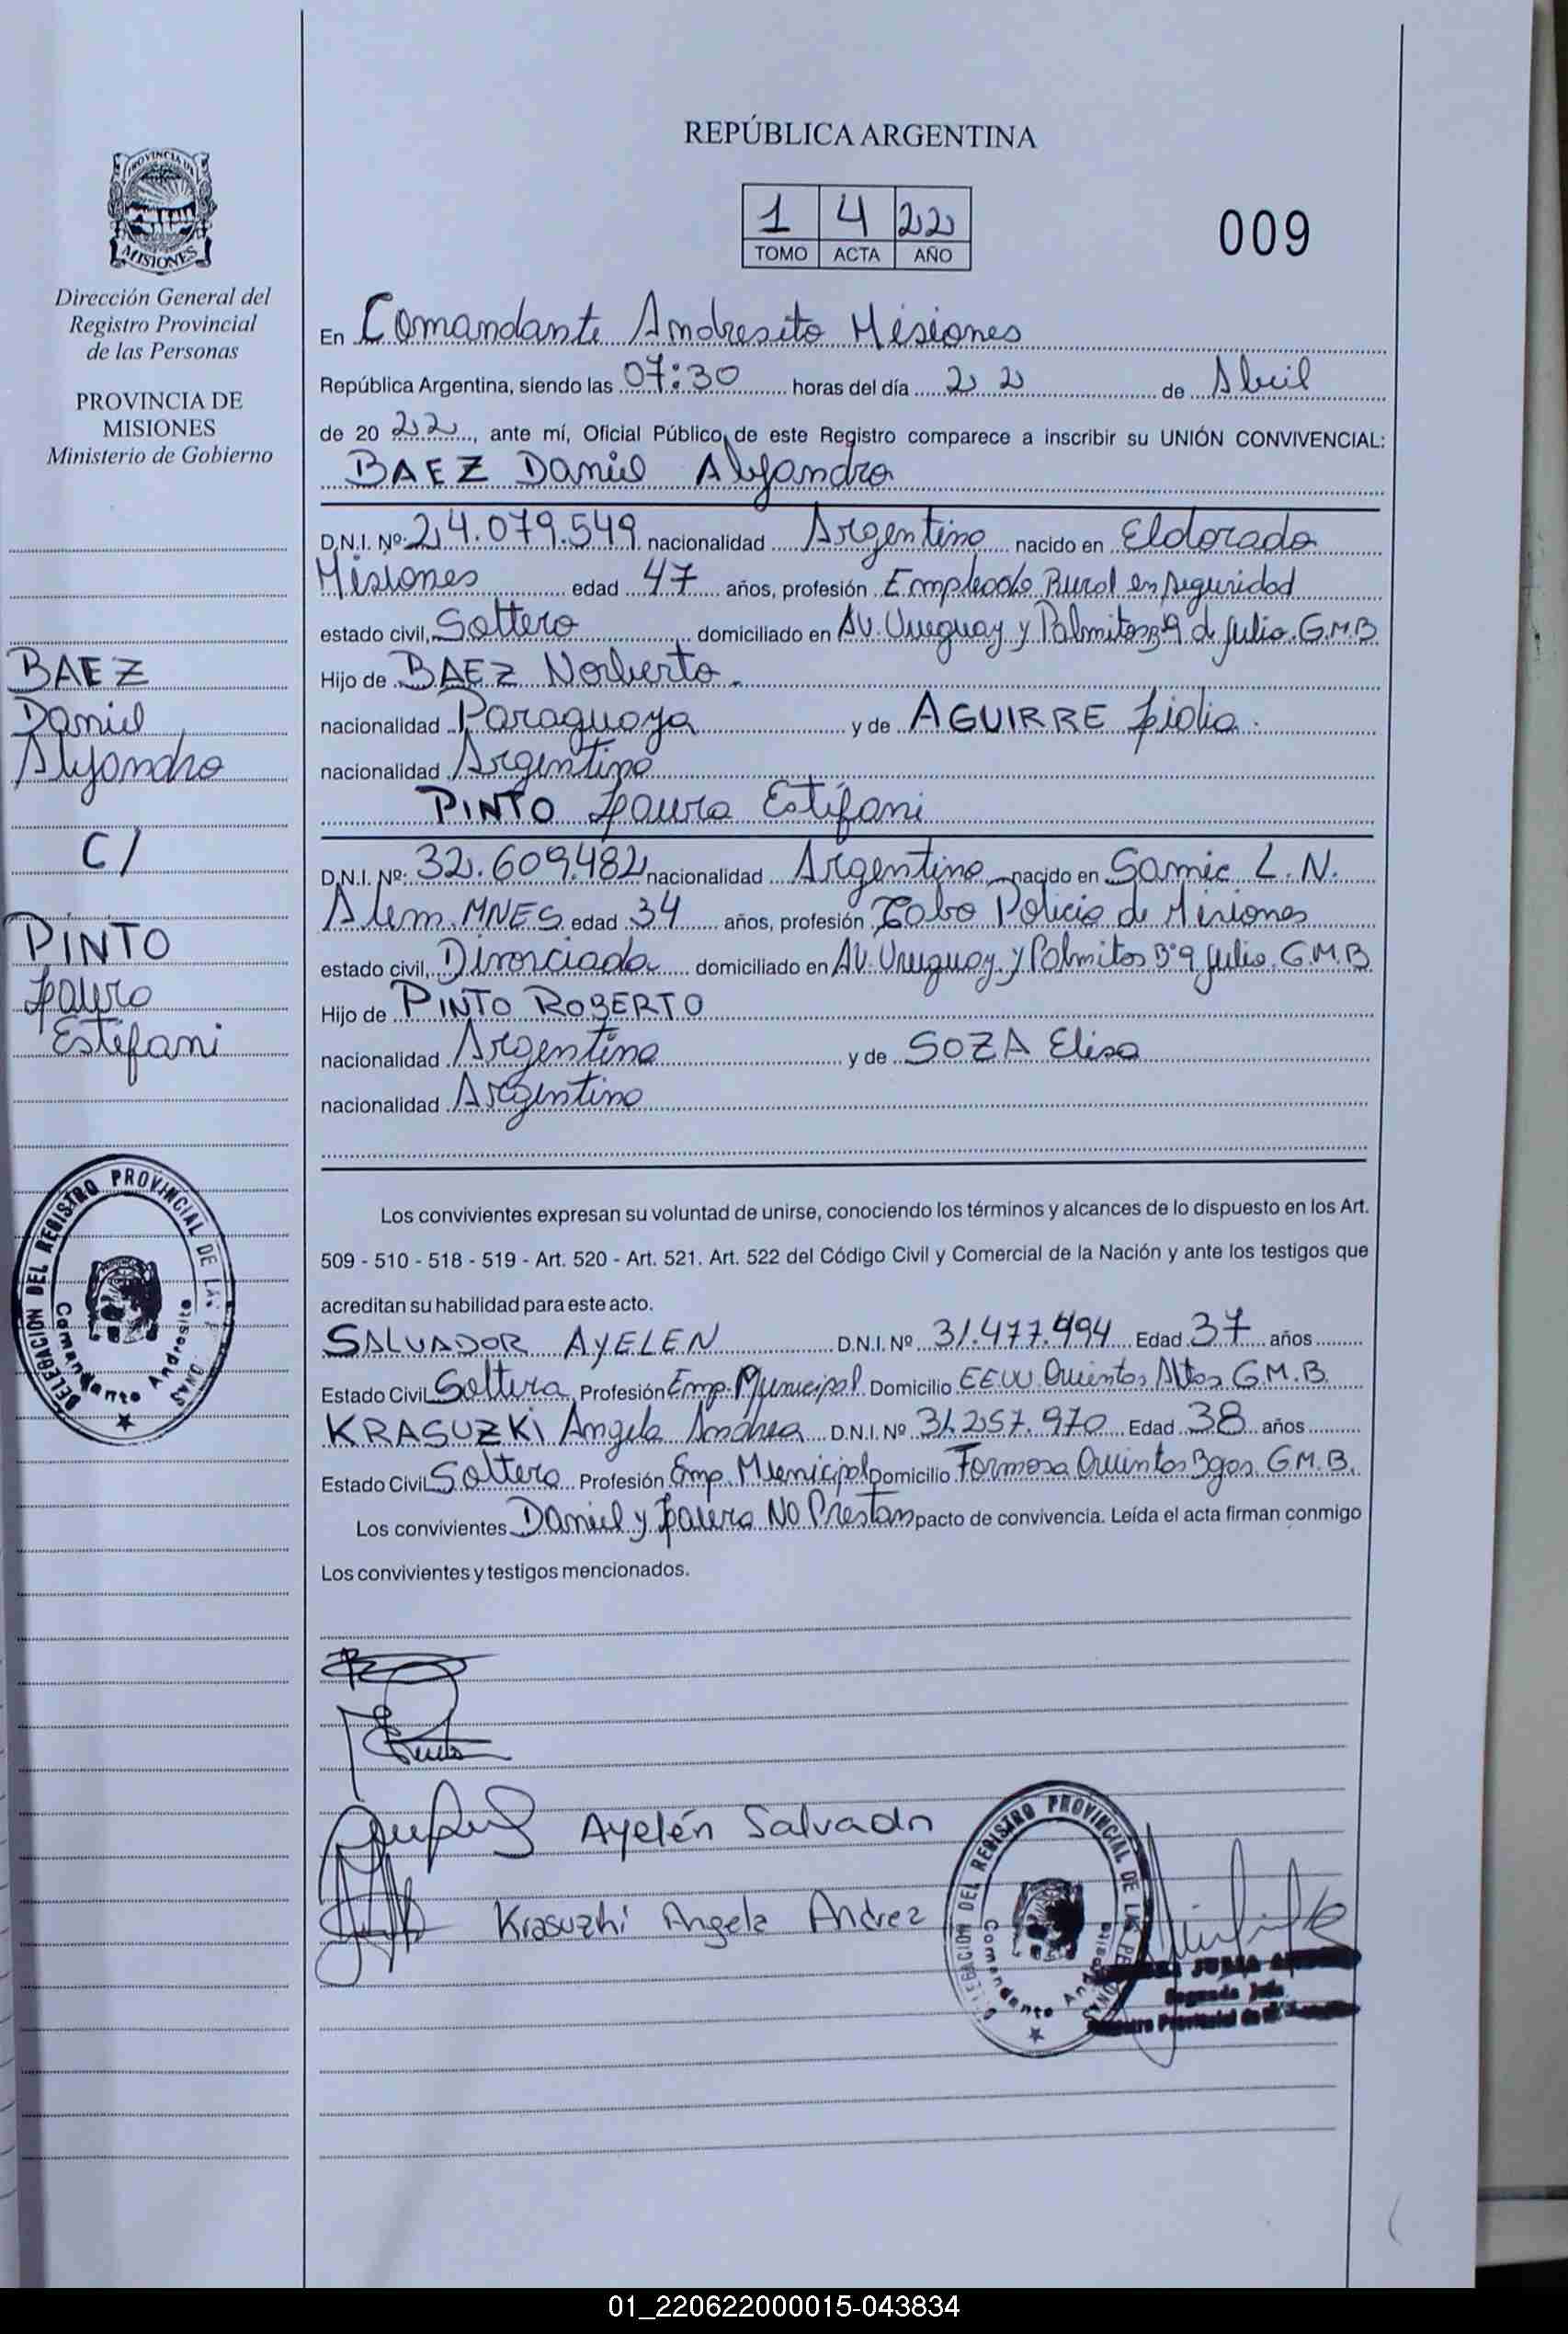 PROVINCIA DE
MISIONES
Dirección General del
Registro Provincial
de las Personas
PROVINCIA DE
MISIONES
Ministerio de Gobierno
BAEZ
Daniel
Alejandro
C/
PINTO
Laura
Estéfani
DELEGACION DEL REGISTRO PROVINCIAL DE LAS
Comandante Andresito
REPÚBLICA ARGENTINA
1 4 22
TOMO ACTA AÑO
009
En Comandante Andresito Misiones
República Argentina, siendo las 07:30 horas del día 22 de Abril
de 20 22, ante mí, Oficial Público de este Registro comparece a inscribir su UNIÓN CONVIVENCIAL:
BAEZ Daniel Alejandro
D.N.I. Nº: 24.079.549 nacionalidad Argentino nacido en Eldorado
Misiones edad 47 años, profesión Empleado Rural en Seguridad
estado civil, Soltero domiciliado en Av. Uruguay y Palmitos Bº 9 de Julio. G.M.B
Hijo de BAEZ Norberto.
nacionalidad Paraguaya y de AGUIRRE Lidia.
nacionalidad Argentina
PINTO Laura Estéfani
D.N.I. Nº: 32.609.482 nacionalidad Argentina nacido en Samic L.N.
Alem. MNES edad 34 años, profesión Cabo Policia de Misiones
estado civil, Divorciada domiciliado en AV. Uruguay y Palmitos Bº 9 Julio. G.M.B
Hijo de PINTO ROBERTO
nacionalidad Argentina y de SOZA Elisa
nacionalidad Argentina
Los convivientes expresan su voluntad de unirse, conociendo los términos y alcances de lo dispuesto en los Art.
509 - 510 - 518 - 519 - Art. 520 - Art. 521. Art. 522 del Código Civil y Comercial de la Nación y ante los testigos que
acreditan su habilidad para este acto.
SALVADOR AYELEN D.N.I. Nº 31.477.494 Edad 37 años
Estado Civil Soltera Profesión Emp. Municipal Domicilio EEUU Quinientos Altos G.M.B.
KRASUZKI Angela Andrea D.N.I. Nº 31.257.970 Edad 38 años
Estado Civil Soltera Profesión Emp. Municipal Domicilio Formosa Quinientos Bajos G.M.B.
Los convivientes Daniel y Laura NO Prestan pacto de convivencia. Leída el acta firman conmigo
Los convivientes y testigos mencionados.
Ayelén Salvador
Krasuzki Angela Andrea
DELEGACION DEL REGISTRO PROVINCIAL DE LAS
Comandante Andresito
JULIA
01_220622000015-043834